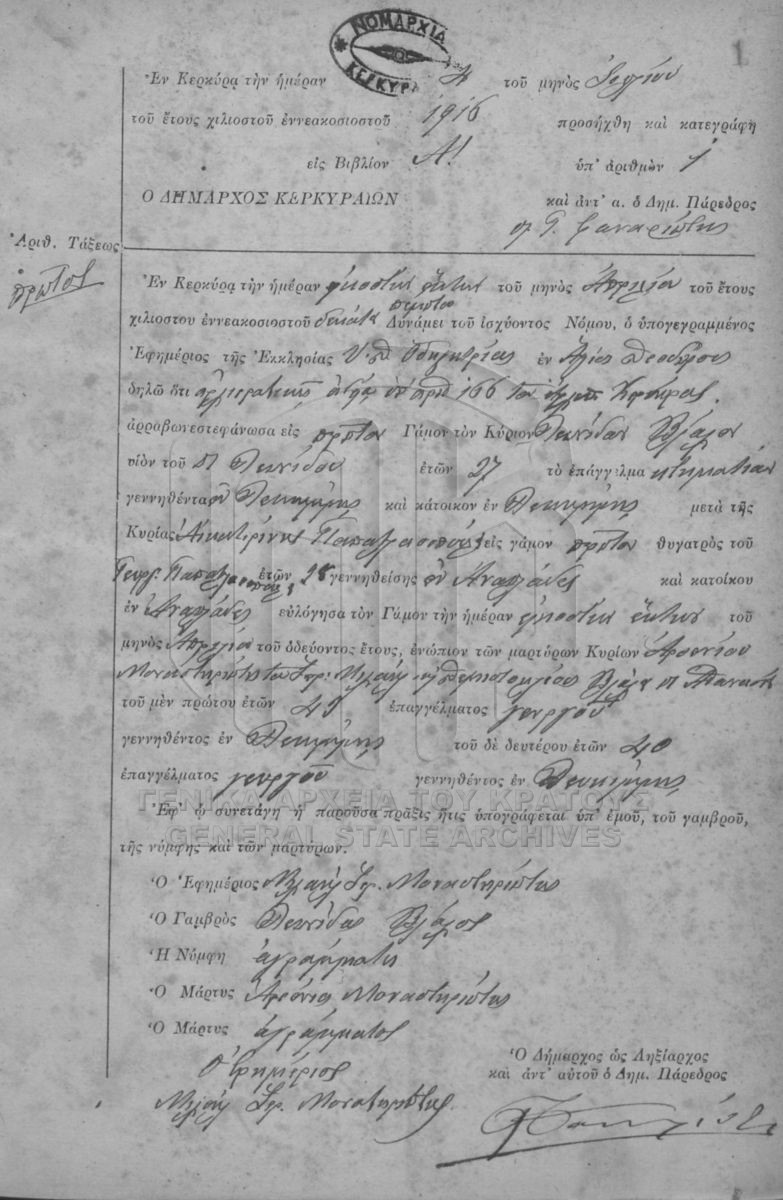 ΝΟΜΑΡΧΙΑ
ΚΕΡΚΥΡΑ
1
Ἐν Κερκύρᾳ τὴν ἡμέραν 4 τοῦ μηνὸς
τοῦ ἔτους χιλιοστοῦ ἐννεακοσιοστοῦ 1916 προσήχθη καὶ κατεγράφη
εἰς Βιβλίον Α! ὑπ' ἀριθμὸν 1
Ο ΔΗΜΑΡΧΟΣ ΚΕΡΚΥΡΑΙΩΝ καὶ ἀντ' α. ὁ Δημ. Πάρεδρος
Ἀριθ. Τάξεως
πρῶτος
Ἐν Κερκύρᾳ τὴν ἡμέραν εἰκοστὴν ἕκτην τοῦ μηνὸς Ἀπριλίου τοῦ ἔτους
χιλιοστου ἐννεακοσιοστοῦ δεκάτου Δυνάμει τοῦ ἰσχύοντος Νόμου, ὁ ὑπογεγραμμένος
Ἐφημέριος τῆς Ἐκκλησίας Ὁδηγητρίας ἐν Ἁγίους Θεοδώρους
δηλῶ ὅτι 166
ἀρραβωνεστεφάνωσα εἰς πρῶτον Γάμον τὸν Κύριον Λεωνίδαν Βλάχον
υἱὸν τοῦ Π Λεωνίδου ἐτῶν 27 τὸ ἐπάγγελμα κτηματίαν
γεννηθέντα ἐν Λευκίμμης καὶ κάτοικον ἐν Λευκίμμης μετὰ τῆς
Κυρίας Αἰκατερίνης εἰς γάμον πρῶτον θυγατρὸς τοῦ
Γεωργ. ἐτῶν 28 γεννηθείσης ἐν Ἀναπλάδες καὶ κατοίκου
ἐν Ἀναπλάδες εὐλόγησα τὸν Γάμον τὴν ἡμέραν εἰκοστὴν ἕκτην τοῦ
μηνὸς Ἀπριλίου τοῦ ὁδεύοντος ἔτους, ἐνώπιον τῶν μαρτύρων Κυρίων
Μοναστηριώτη τοῦ
τοῦ μὲν πρώτου ἐτῶν 49 ἐπαγγέλματος γεωργοῦ
γεννηθέντος ἐν Λευκίμμης τοῦ δὲ δευτέρου ἐτῶν 40
ἐπαγγέλματος γεωργοῦ γεννηθέντος ἐν Λευκίμμης
ΓΕΝΙΚΑ ΑΡΧΕΙΑ ΤΟΥ ΚΡΑΤΟΥΣ
GENERAL STATE ARCHIVES
Ἐφ' ᾧ συνετάγη ἡ παροῦσα πρᾶξις ἥτις ὑπογράφεται ὑπ' ἐμοῦ, τοῦ γαμβροῦ,
τῆς νύμφης καὶ τῶν μαρτύρων.
Ὁ Ἐφημέριος Μιχαὴλ Σπ. Μοναστηριώτης
Ὁ Γαμβρὸς Λεωνίδας Βλάχος
Ἡ Νύμφη ἀγράμματη
Ὁ Μάρτυς Μοναστηριώτης
Ὁ Μάρτυς ἀγράμματος
Ὁ ἐφημέριος
Μιχαὴλ Σπ. Μοναστηριώτης
Ὁ Δήμαρχος ὡς Ληξίαρχος
καὶ ἀντ' αὐτοῦ ὁ Δημ. Πάρεδρος